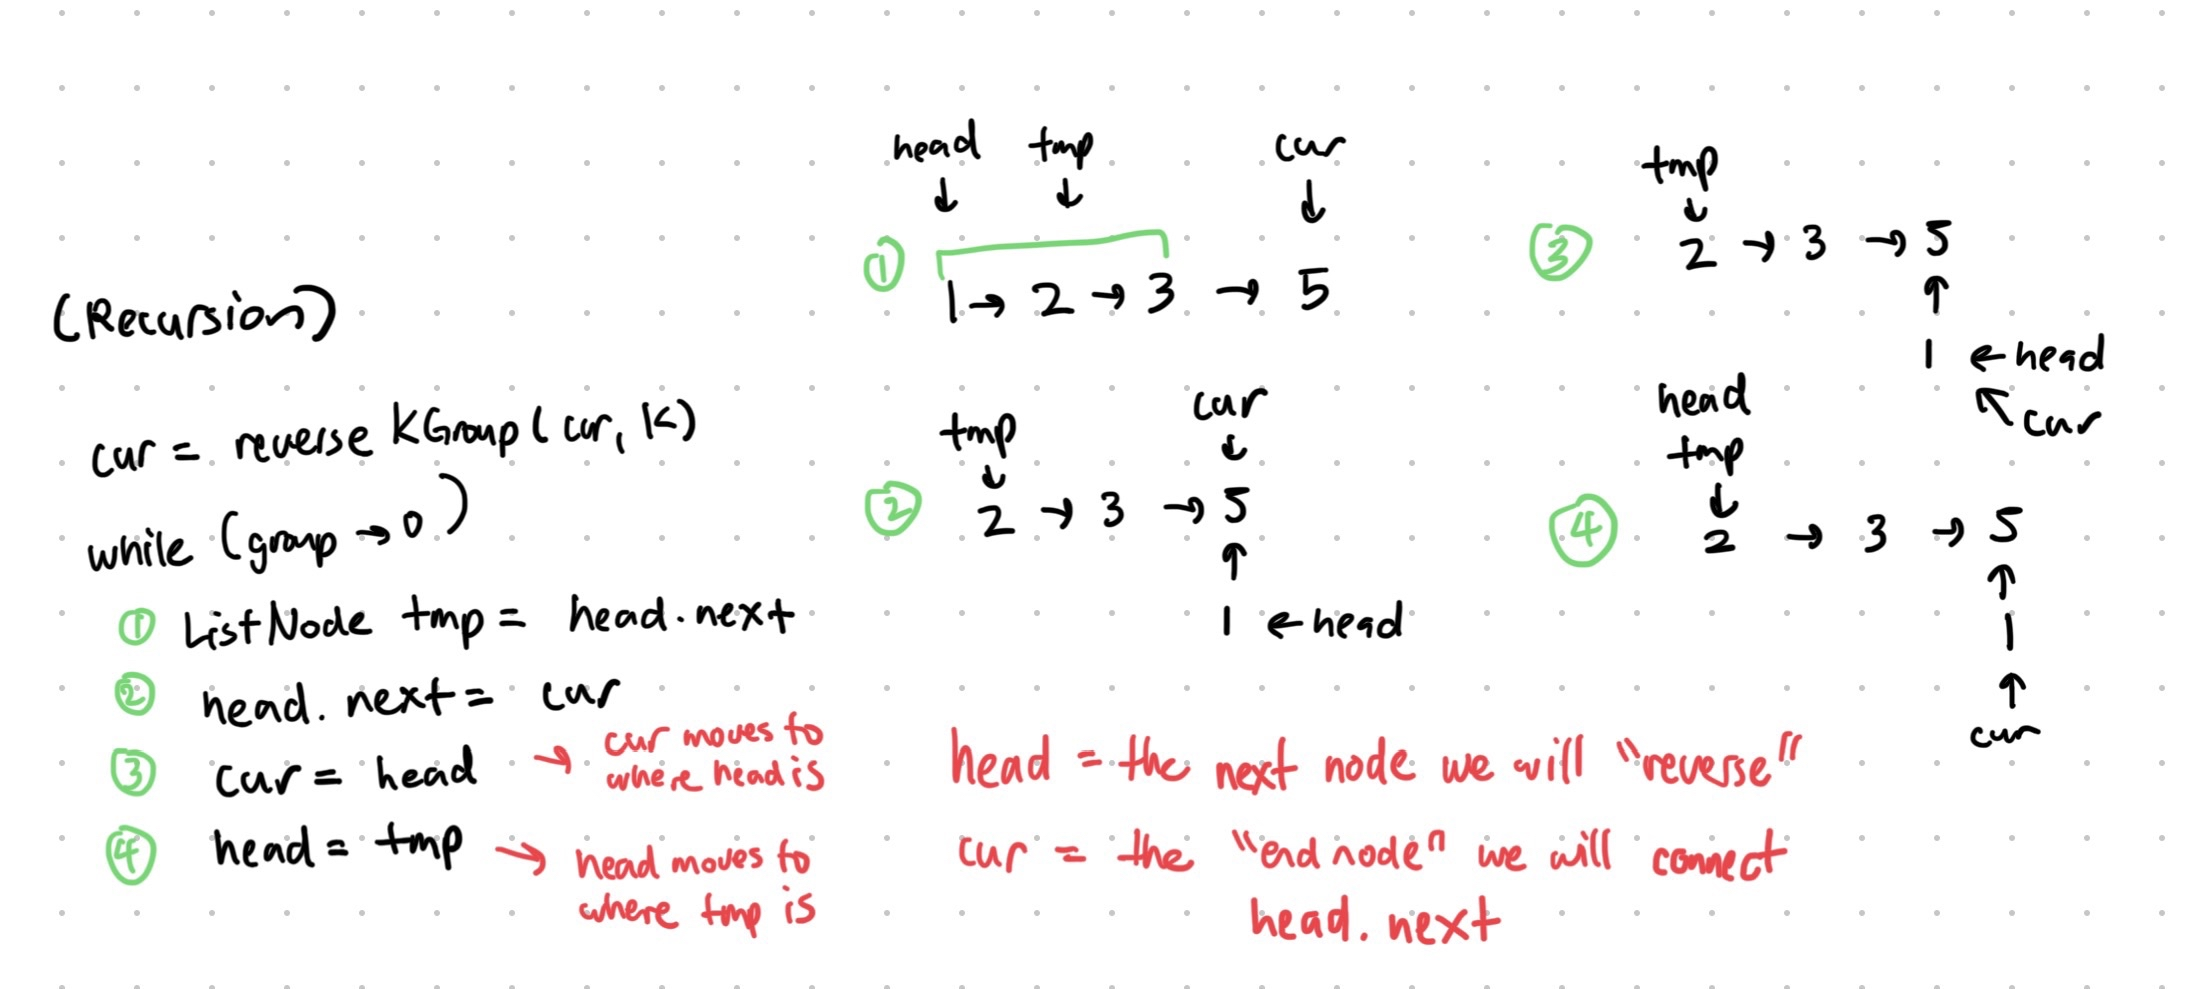 (Recursion)
cur = reverse KGroup ( cur, K)
while (group → 0 )
① ListNode tmp = head.next
② head. next = cur
③ cur = head → cur moves to
where head is
④ head = tmp → head moves to
where tmp is
head tmp cur
↓ ↓ ↓
① 1 → 2 → 3 → 5
tmp cur
↓ ↓
② 2 → 3 → 5
↑
1 ← head
tmp
↓
③ 2 → 3 → 5
↑
1 ← head
↖ cur
head
tmp
↓
④ 2 → 3 → 5
↑
1
↑
cur
head = the next node we will "reverse"
cur = the "end node" we will connect
head. next